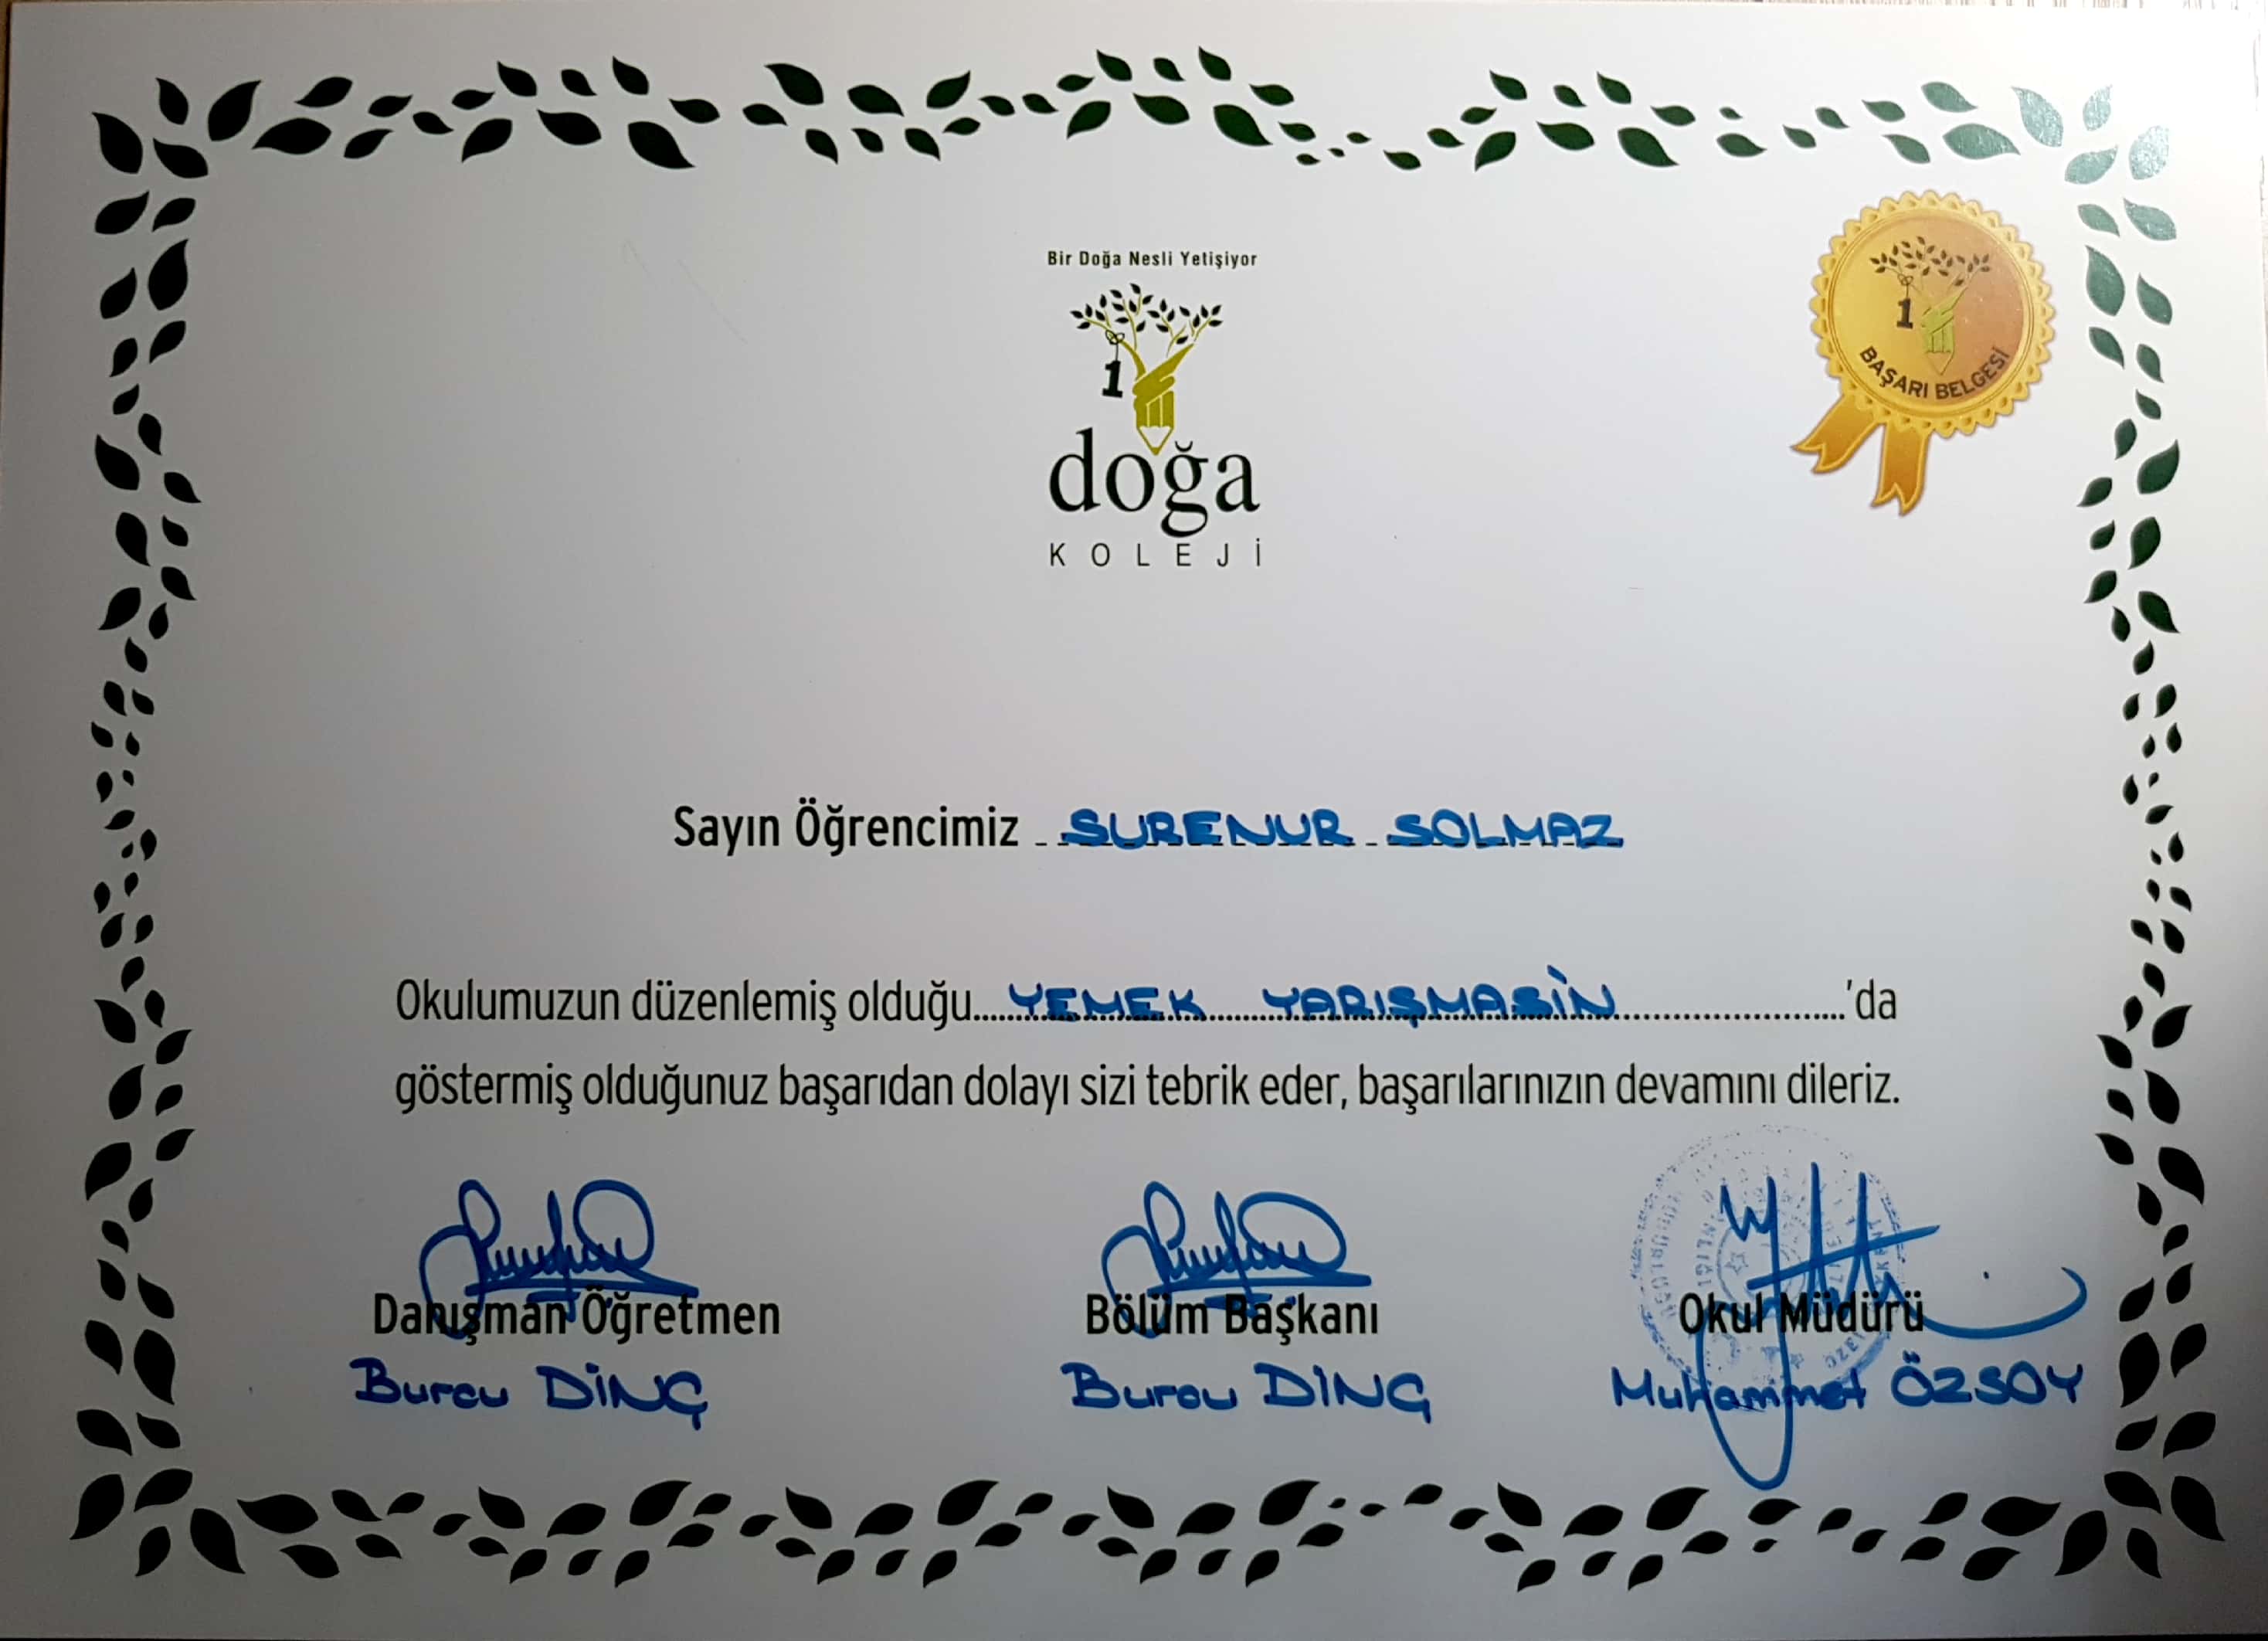 Bir Doğa Nesli Yetişiyor
1
doğa
KOLEJİ
1
BAŞARI BELGESİ
Sayın Öğrencimiz SURENUR SOLMAZ
Okulumuzun düzenlemiş olduğu YEMEK YARIŞMASİN 'da
göstermiş olduğunuz başarıdan dolayı sizi tebrik eder, başarılarınızın devamını dileriz.
Danışman Öğretmen Bölüm Başkanı Okul Müdürü
Burcu DİNÇ Burcu DİNÇ Muhammet ÖZSOY